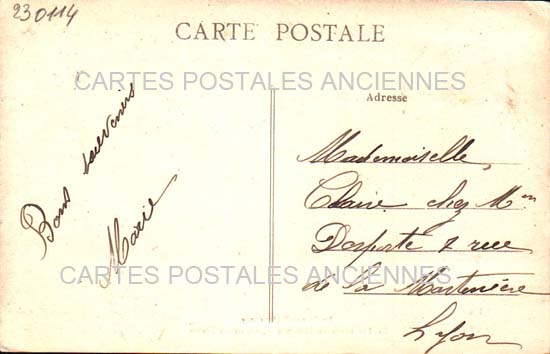 230114
CARTE POSTALE
CARTES POSTALES ANCIENNES
Adresse
Bons souvenirs
Marie
Mademoiselle
Claire chez Mme
Desporte 7 rue
de la Martinière
Lyon
CARTES POSTALES ANCIENNES